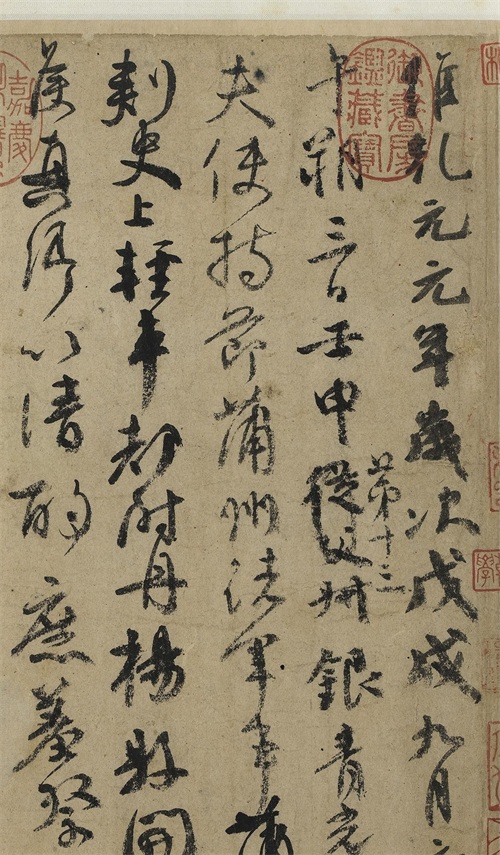 維乾元元年歲次戊戌九月
午朔三日壬申第十三從父叔銀青光
夫使持節蒲州諸軍事蒲
刺史上輕車都尉丹楊縣開
侯真卿以清酌庶羞祭
御書房鑑藏寶
嘉慶